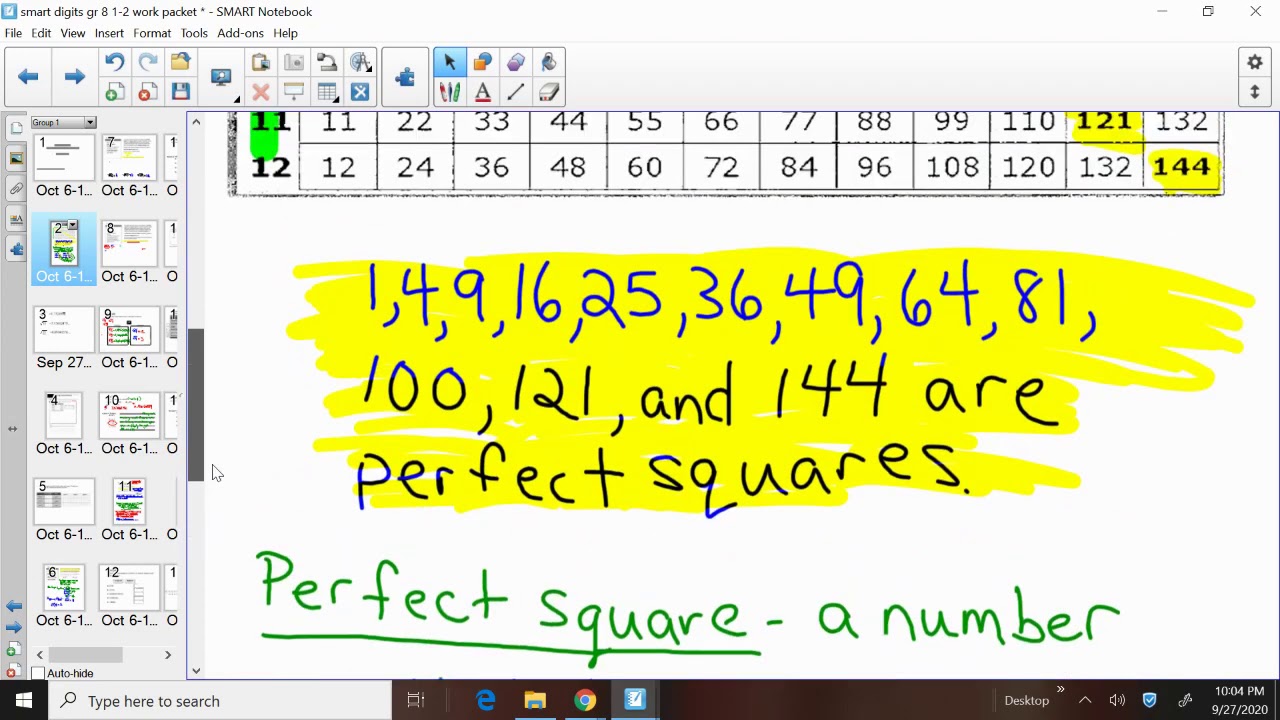 smart digits gr 8 1-2 work packet * - SMART Notebook
File Edit View Insert Format Tools Add-ons Help
Group 1
1 7
Oct 6-1... Oct 6-1... O
2 8
Oct 6-1... Oct 6-1... O
3 9
Sep 27... Oct 6-1... O
4 10
Oct 6-1... Oct 6-1... O
5 11
Oct 6-1... Oct 6-1... O
6 12
Oct 6-1... Oct 6-1... O
Auto-hide
11 11 22 33 44 55 66 77 88 99 110 121 132
12 12 24 36 48 60 72 84 96 108 120 132 144
1, 4, 9, 16, 25, 36, 49, 64, 81,
100, 121, and 144 are
perfect squares.
Perfect square - a number
Type here to search
Desktop
10:04 PM
9/27/2020